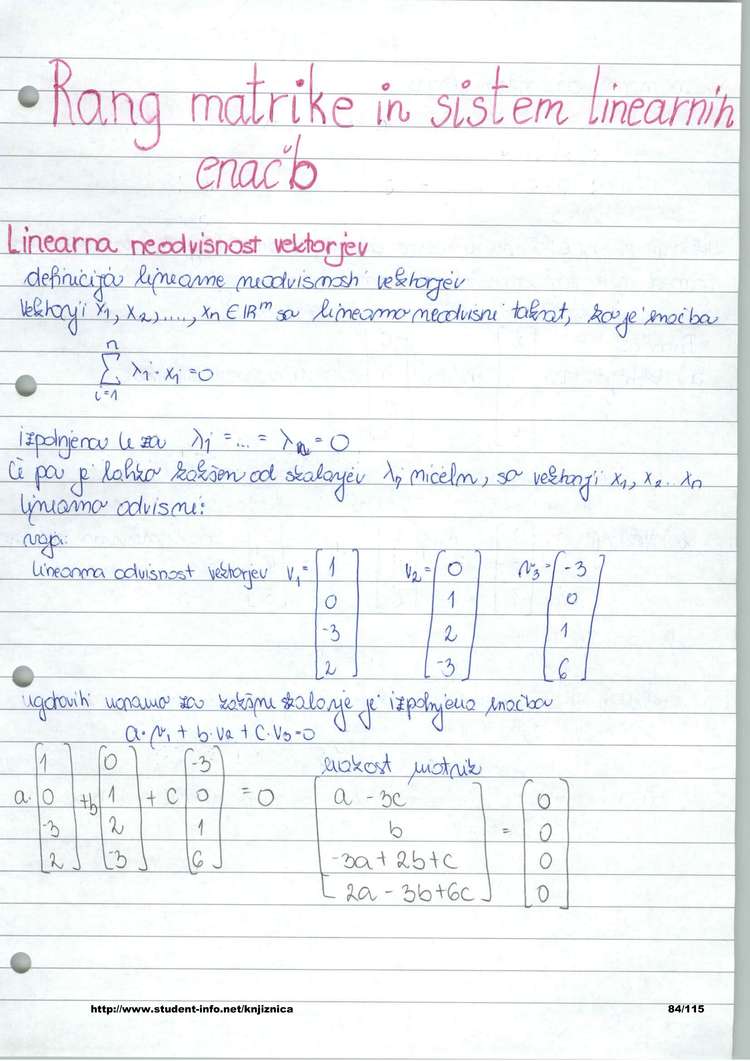 Rang matrike in sistem linearnih
enačb
Linearna neodvisnost vektorjev
definicija linearne neodvisnosti vektorjev
Vektorji x1, x2, ...., xn ∈ IR^m so linearno neodvisni takrat, ko je enačba
n
∑ λi · xi = 0
i=1
izpolnjena le za λi = ... = λn = 0
Če pa je lahko kakšen od skalarjev λi, ničeln, so vektorji x1, x2 .. xn
linearno odvisni:
vaja:
linearna odvisnost vektorjev v1 = [1 0 -3 2] v2 = [0 1 2 -3] v3 = [-3 0 1 6]
ugotoviti moramo za kakšne skalarje je izpolnjena enačba
a · v1 + b · v2 + c · v3 = 0
enakost matrik
a · [1 0 -3 2] + b [0 1 2 -3] + c [-3 0 1 6] = 0
[a - 3c
b
-3a + 2b + c
2a - 3b + 6c] = [0 0 0 0]
http://www.student-info.net/knjiznica 84/115